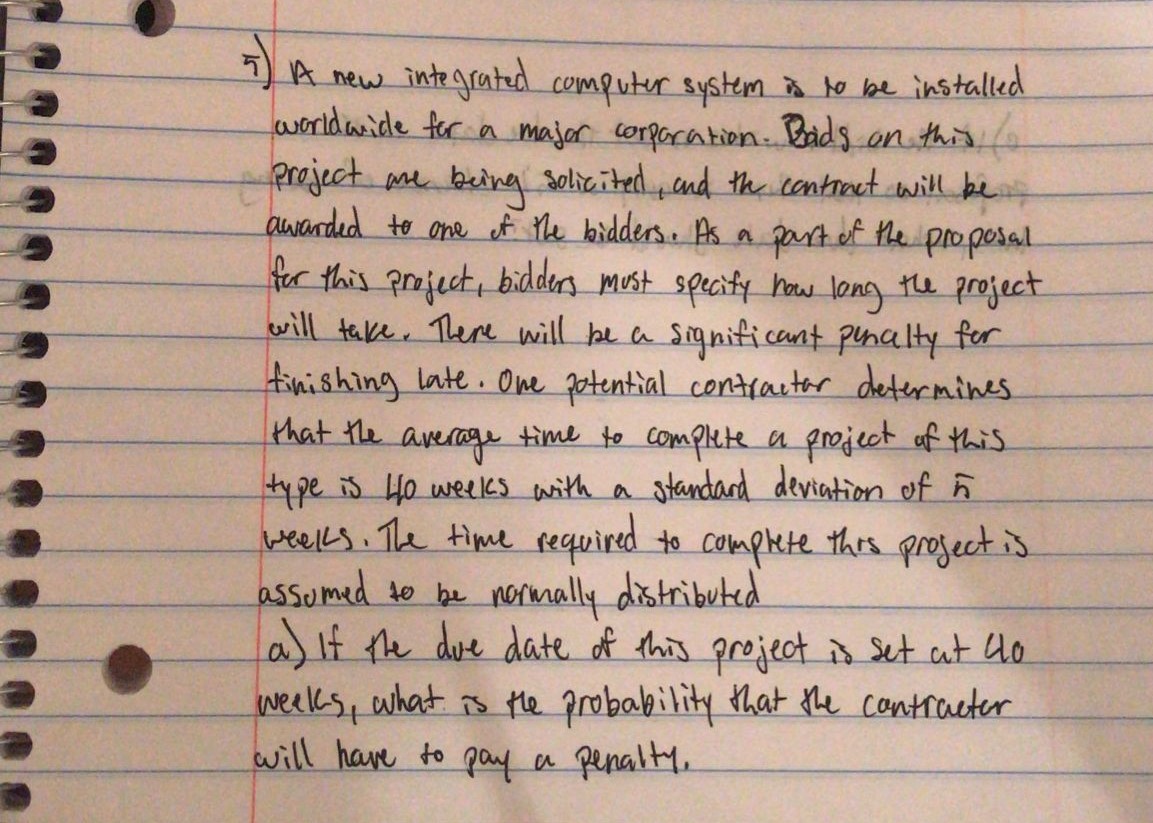 5) A new integrated computer system is to be installed
worldwide for a major corporation. Bids on this
project are being solicited, and the contract will be
awarded to one of the bidders. As a part of the proposal
for this project, bidders must specify how long the project
will take. There will be a significant penalty for
finishing late. One potential contractor determines
that the average time to complete a project of this
type is 40 weeks with a standard deviation of 5
weeks. The time required to complete this project is
assumed to be normally distributed
a) If the due date of this project is set at 40
weeks, what is the probability that the contractor
will have to pay a penalty.